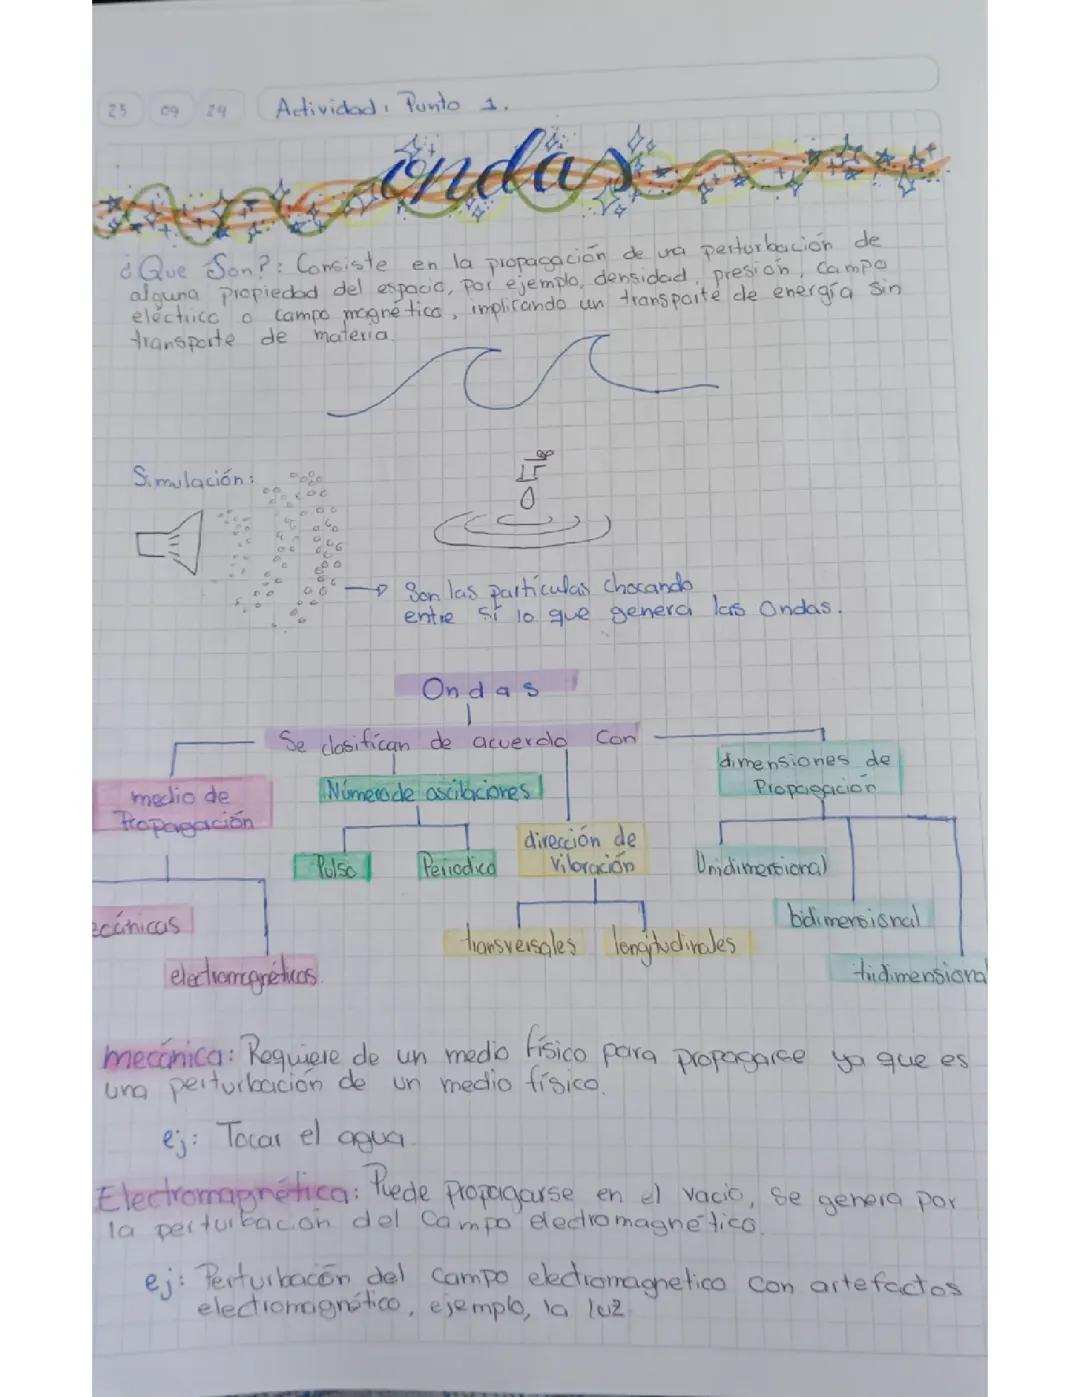 25 09 24 Actividad: Punto 1.
ondas
¿Que Son?: Consiste en la propagación de una perturbación de
alguna propiedad del espacio, por ejemplo, densidad, presión, campo
eléctrico o campo magnético, implicando un transporte de energía sin
transporte de materia.
Simulación:
Son las partículas chocando
entre sí lo que genera las ondas.
Ondas
Se clasifican de acuerdo con
medio de
Propagación
Número de oscilaciones
dirección de
Vibración
dimensiones de
Propagación
Pulso
Periodico
Unidimensional
ecánicas
electromagnéticas.
transversales
longitudinales
bidimensional
tridimensional
mecánica: Requiere de un medio físico para propagarse ya que es
una perturbación de un medio físico.
ej: Tocar el agua.
Electromagnética: Puede propagarse en el vacio, se genera por
la perturbación del campo electromagnético.
ej: Perturbacón del campo electromagnetico con artefactos
electromagnético, ejemplo, la luz.